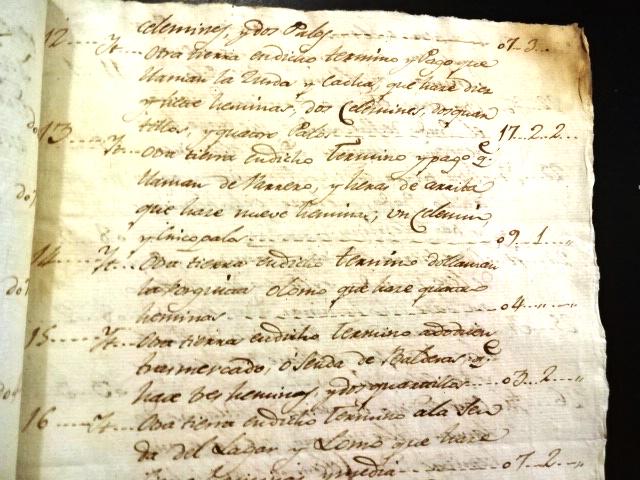 celemines, y dos Palos ------ 07..3...
12 ---- Yt... Otra tierra en dicho termino y Pago que
llaman la y que hace diez
y siete heminas, dos Celemines, dos quar
tillos, y quatro Palos ------ 17..2..2..
13 ---- Yt... Otra tierra en dicho termino y pago q.e
llaman de Barrero, y heras de arriba
que hace nueve heminas, un Celemin,
y Cinco palos ------ 09..1..
14 ---- Yt... Otra tierra en dicho termino do llaman
la o Lomo que hace quatro
heminas ------ 04..
15 ---- Yt... Otra tierra en dicho termino a do dicen
trasmercado, ó Senda de Balderas q.e
hace tres heminas, y dos quartillos --- 03..2..
16 ---- Yt... Otra tierra en dicho termino a la Sen
da del y Lomo que hace
heminas y media ------ 07..2..